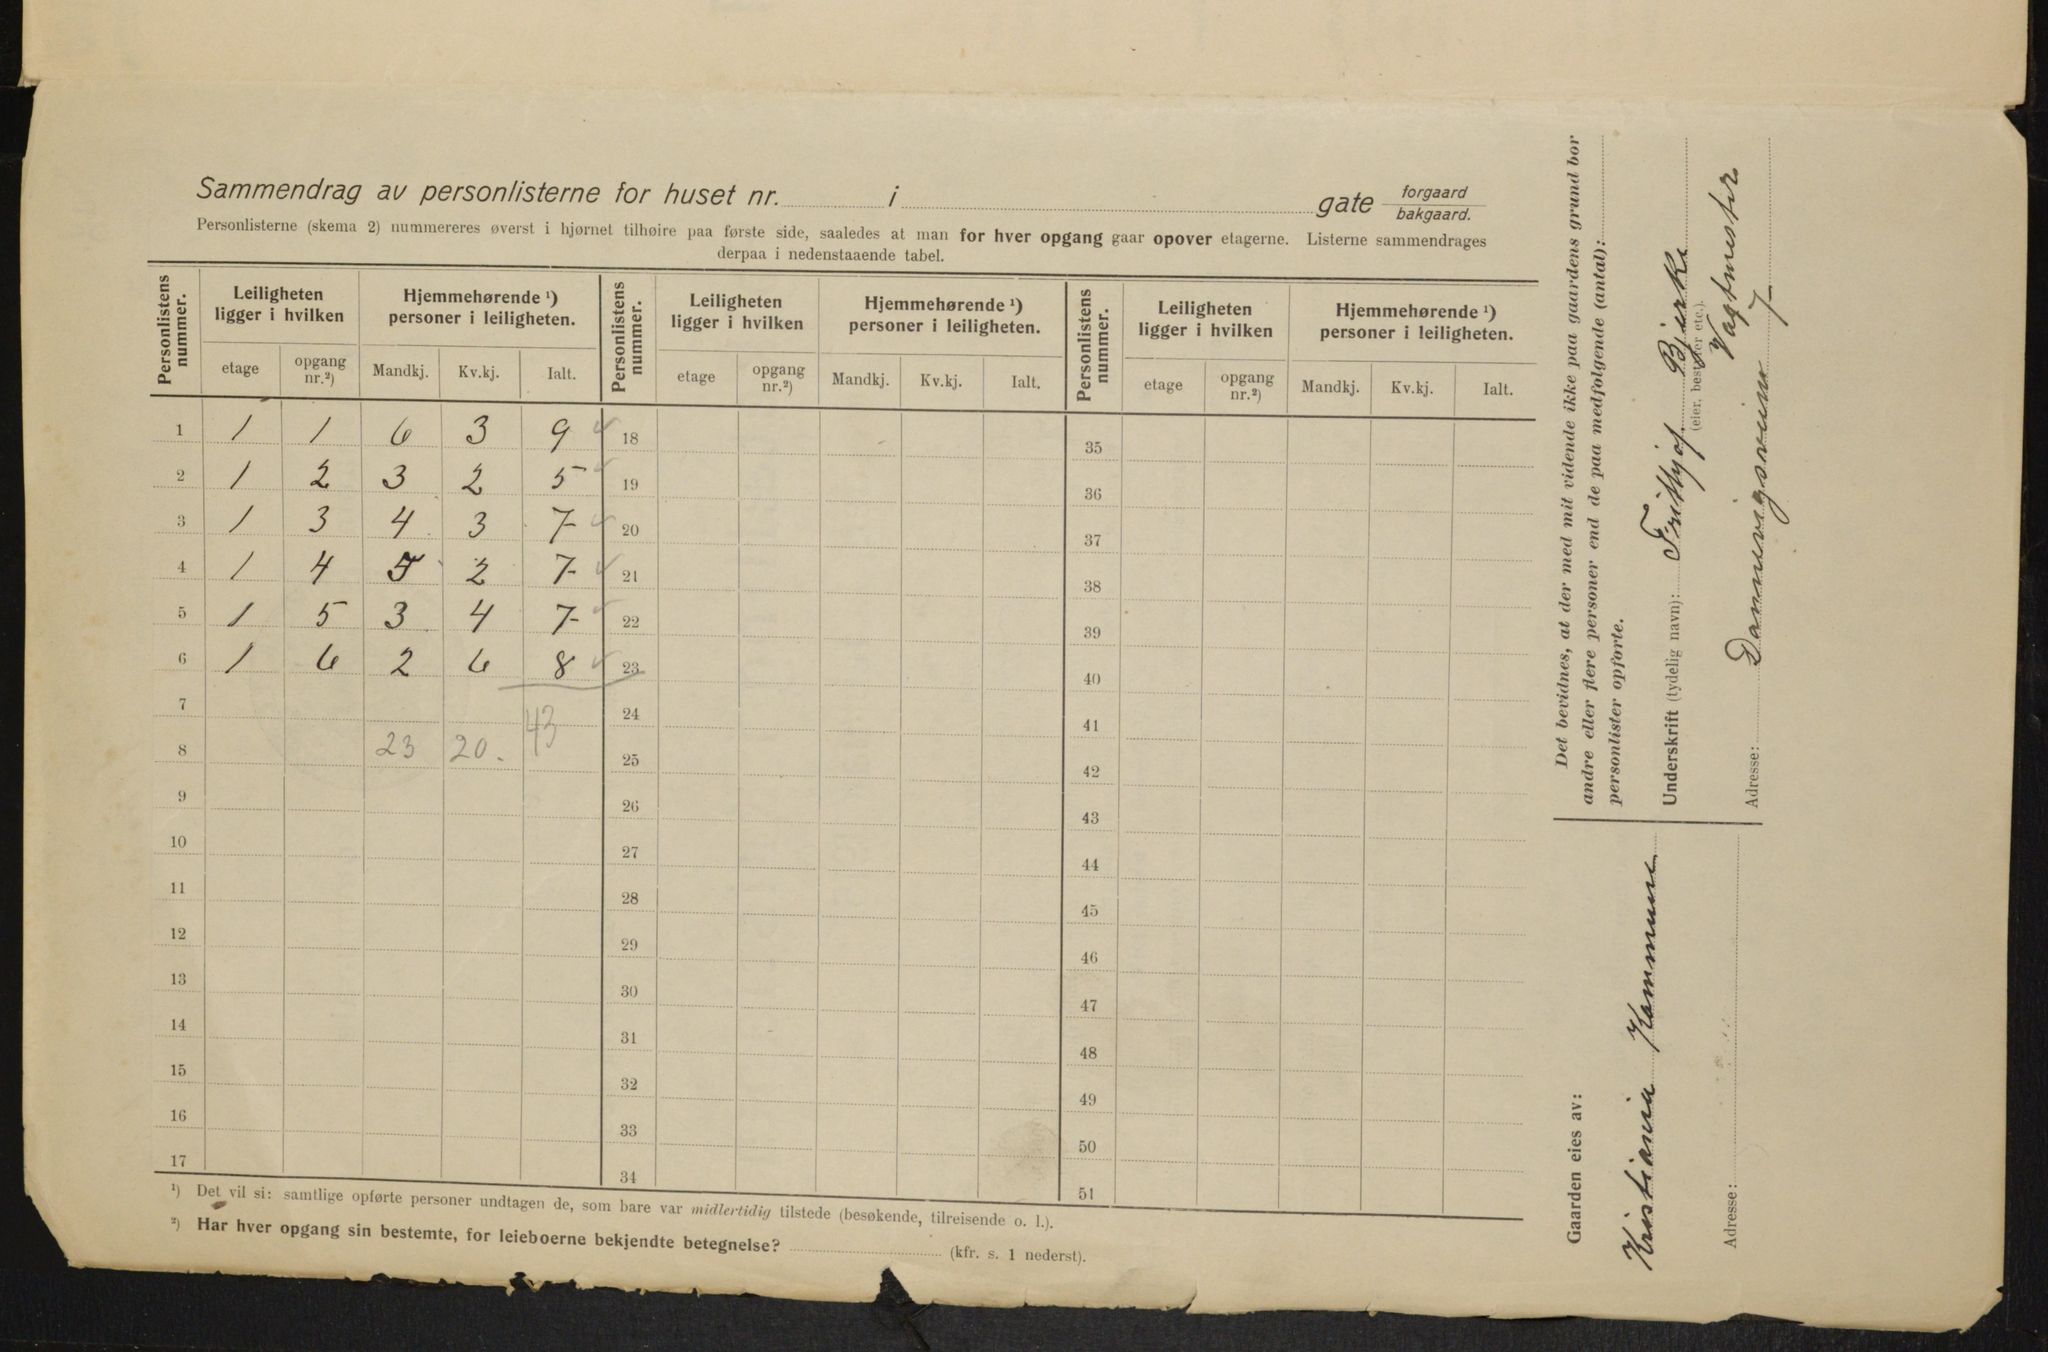 Sammendrag av personlisterne for huset nr. i gate forgaard
bakgaard.
Personlisterne (skema 2) nummereres øverst i hjørnet tilhøire paa første side, saaledes at man for hver opgang gaar opover etagerne. Listerne sammendrages
derpaa i nedenstaaende tabel.
Personlistens nummer. Leiligheten ligger i hvilken Hjemmehørende ¹) personer i leiligheten. Personlistens nummer. Leiligheten ligger i hvilken Hjemmehørende ¹) personer i leiligheten. Personlistens nummer. Leiligheten ligger i hvilken Hjemmehørende ¹) personer i leiligheten.
etage opgang nr.²) Mandkj. Kv.kj. Ialt. etage opgang nr.²) Mandkj. Kv.kj. Ialt. etage opgang nr.²) Mandkj. Kv.kj. Ialt.
1 1 1 6 3 9 18 35
2 1 2 3 2 5 19 36
3 1 3 4 3 7 20 37
4 1 4 5 2 7 21 38
5 1 5 3 4 7 22 39
6 1 6 2 6 8 23 40
7 43 24 41
8 23 20. 25 42
9 26 43
10 27 44
11 28 45
12 29 46
13 30 47
14 31 48
15 32 49
16 33 50
17 34 51
¹) Det vil si: samtlige opførte personer undtagen de, som bare var midlertidig tilstede (besøkende, tilreisende o. l.).
²) Har hver opgang sin bestemte, for leieboerne bekjendte betegnelse? (kfr. s. 1 nederst).
Det bevidnes, at der med mit vidende ikke paa gaardens grund bor
andre eller flere personer end de paa medfølgende (antal):
personlister opførte.
Underskrift (tydelig navn): Frithjof Bjerke
(eier, bestyrer etc.).
Vagtmester
Adresse: Dannevigsveien 7
Gaarden eies av:
Kristiania Kommune
Adresse: